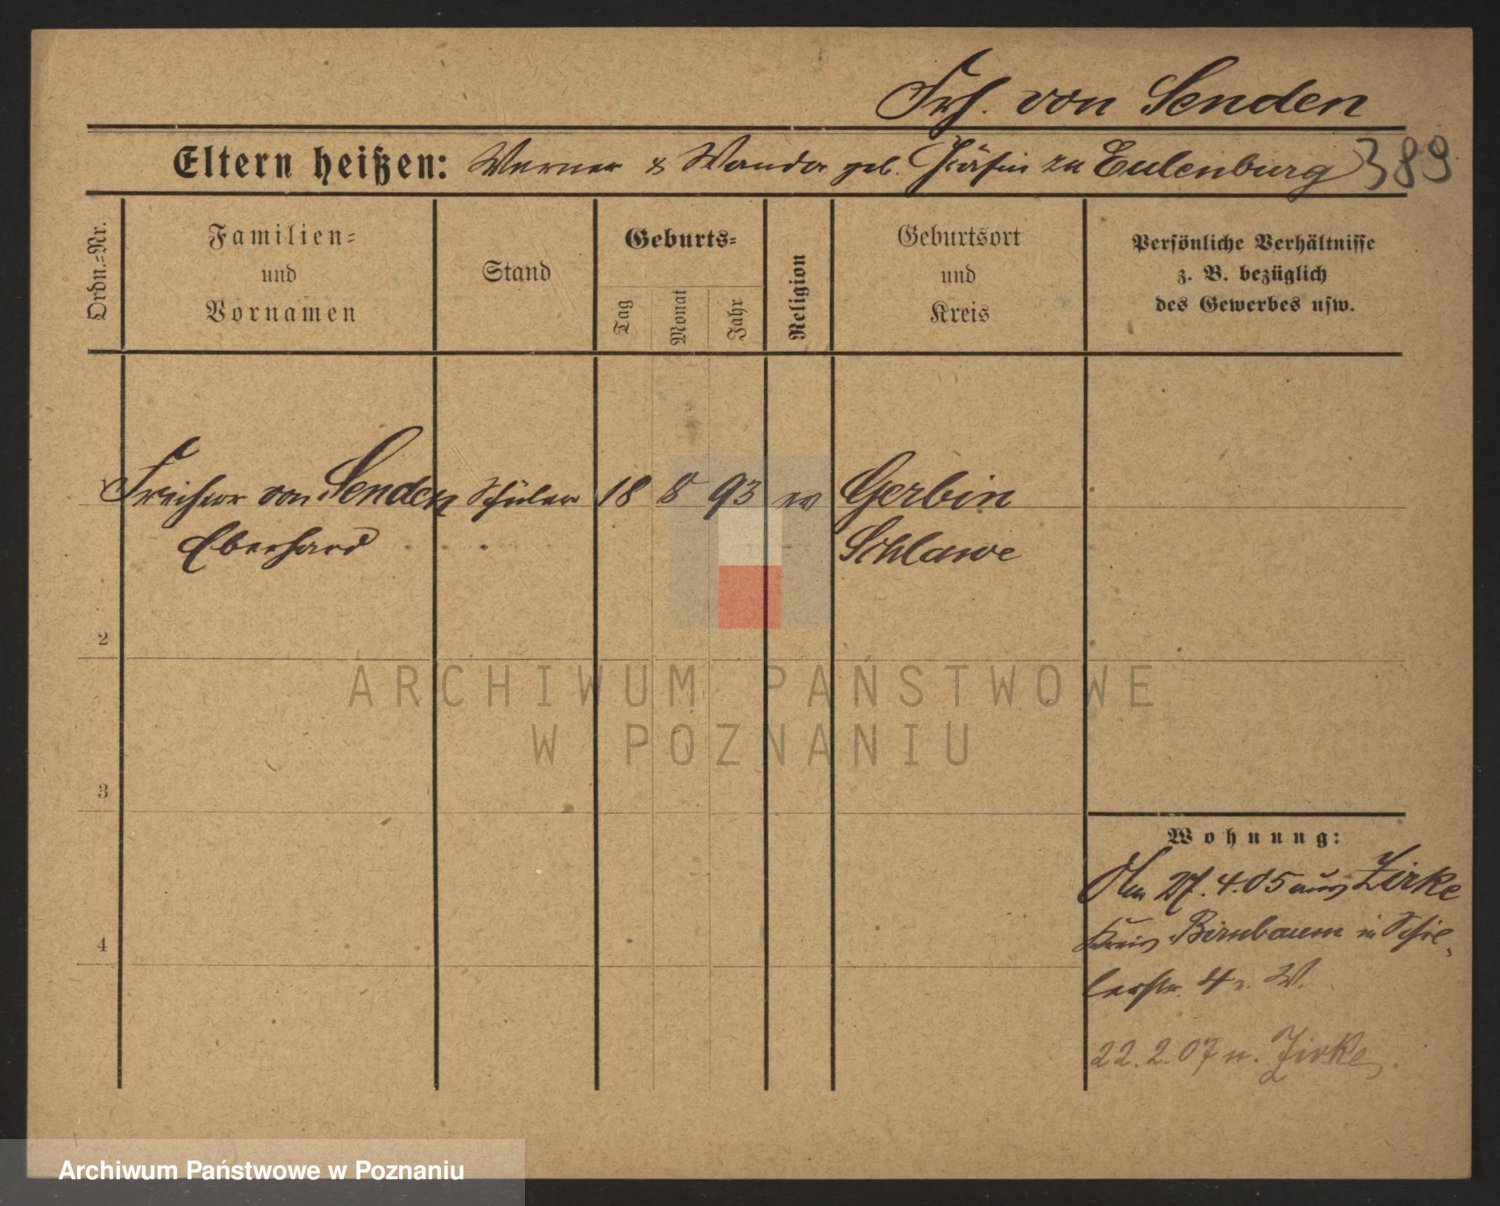 Frh. von Senden
Eltern heißen: Werner & Wanda geb. Gräfin zu Eulenburg 389
Ordn.=Nr.
Familien=
und
Vornamen
Stand
Geburts=
Tag
Monat
Jahr
Religion
Geburtsort
und
Kreis
Persönliche Verhältnisse
z. B. bezüglich
des Gewerbes usw.
Freiherr von Senden Schüler 18 8 93 ev Gerbin
Eberhard Schlawe
2
3
4
Wohnung:
Am 27.4.05 aus Zirke
Kreis Birnbaum in Schil-
lerstr. 4 b. W.
22.2.07 n. Zirke
ARCHIWUM PAŃSTWOWE
W POZNANIU
Archiwum Państwowe w Poznaniu